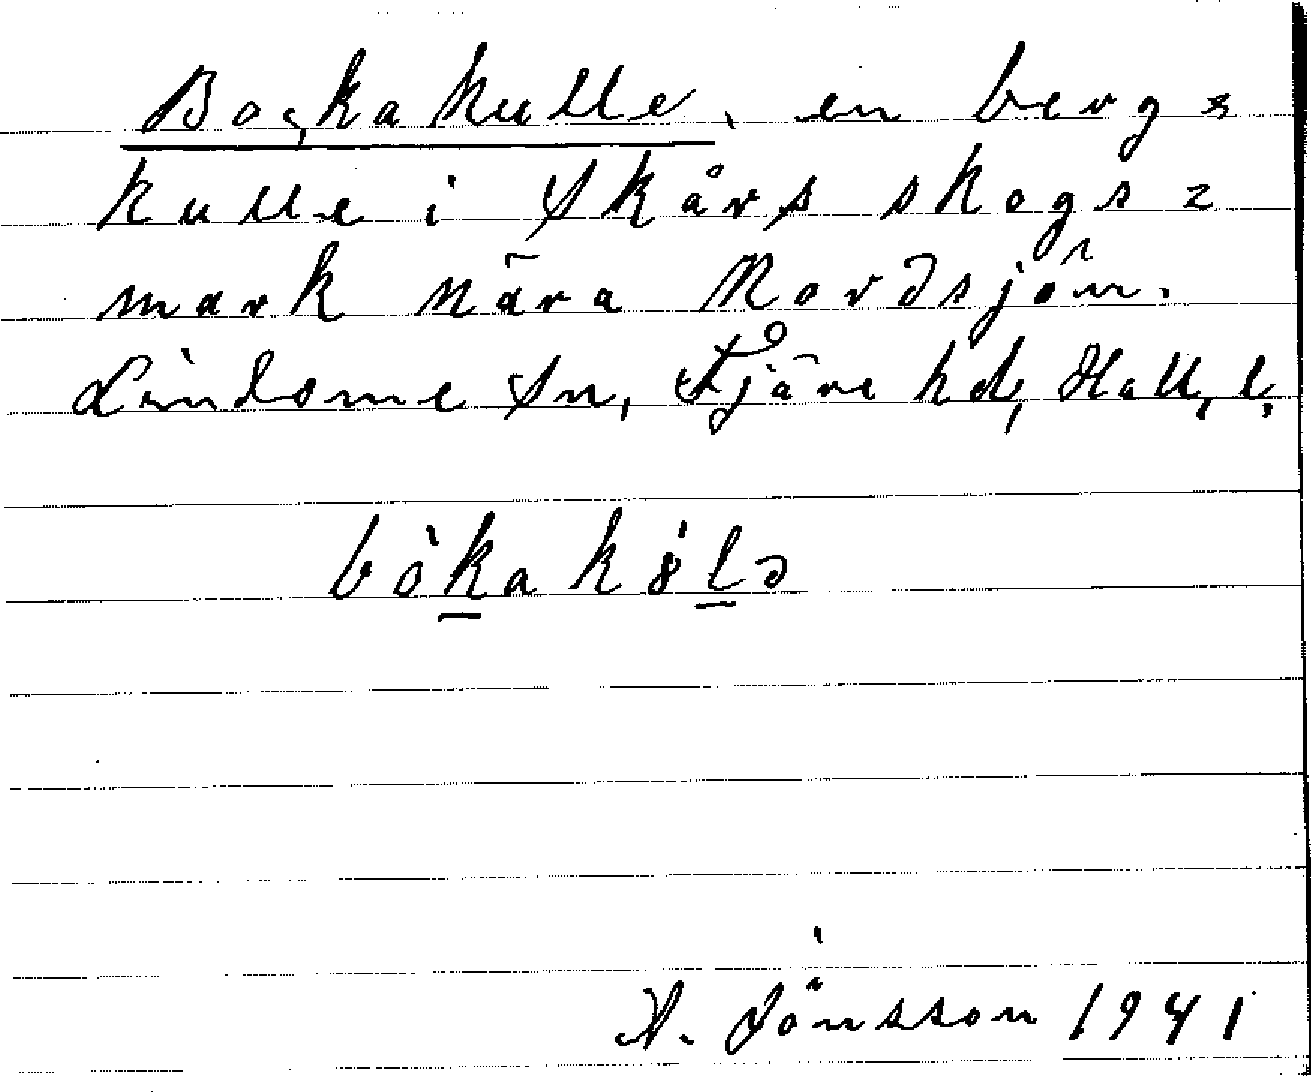 Bockakulle, en bergs=
kulle i Skårs skogs=
mark nära Nordsjön.
Lindome sn, Fjäre hd, Hall. l.
bòkakúlə
A. Jönsson 1941